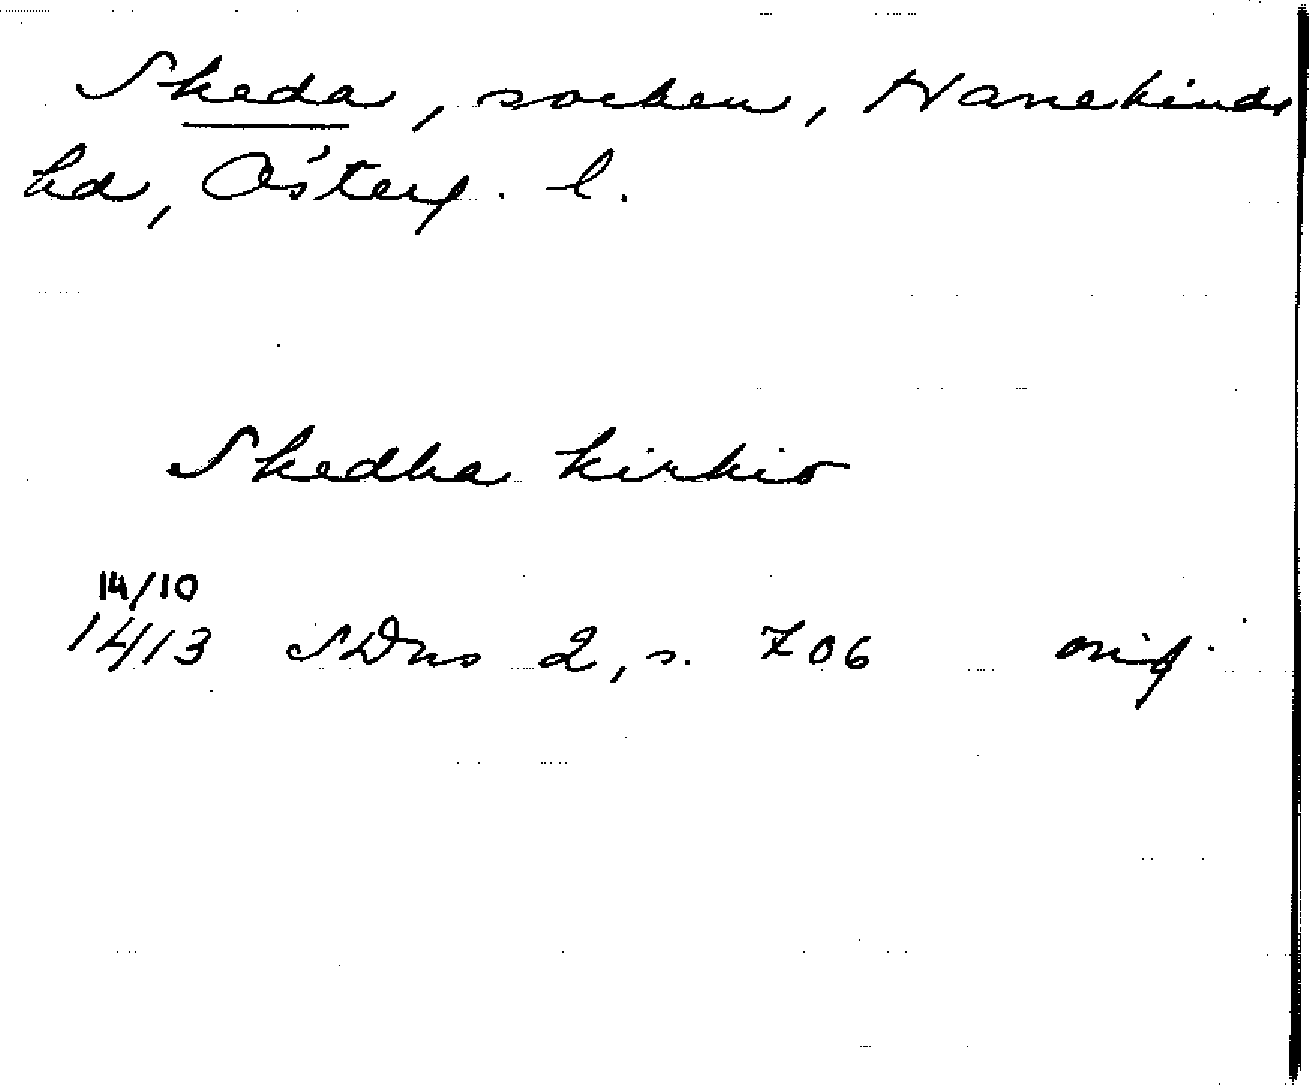 Skeda, socken, Hanekinds
hd, Österg. l.
Skedha kirkio
14/10
1413 SDns 2, s. 706 orig.